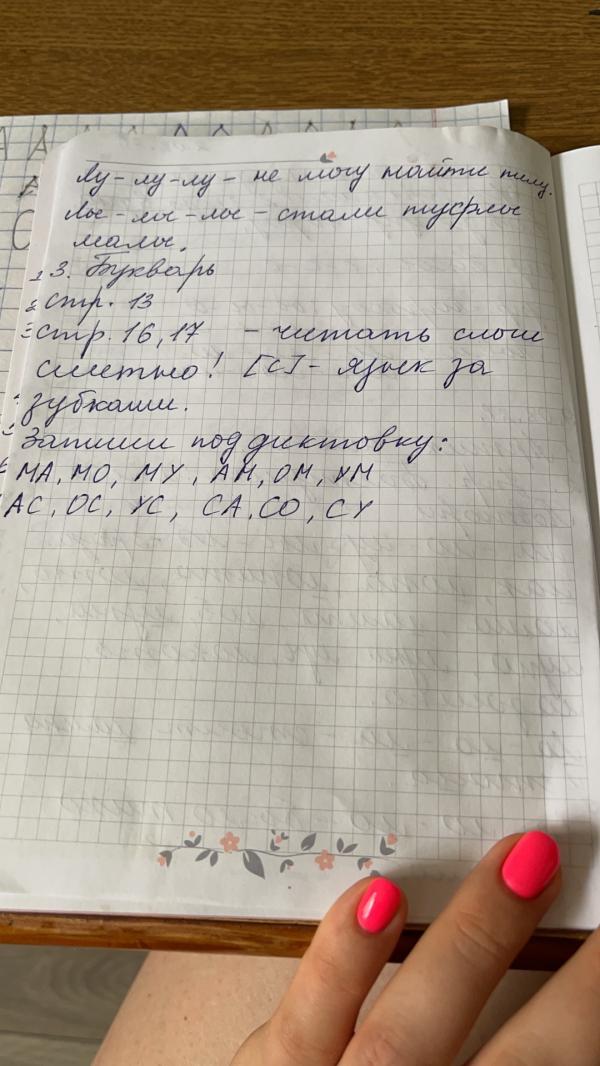 Лу-лу-лу - не могу найти пилу.
Лы-лы-лы - стали туфлы
малы.
3. Букварь
стр. 13
стр. 16, 17 - читать слоги
слитно! [с] - язык за
зубками.
Запиши под диктовку:
МА, МО, МУ, АМ, ОМ, УМ
АС, ОС, УС, СА, СО, СУ